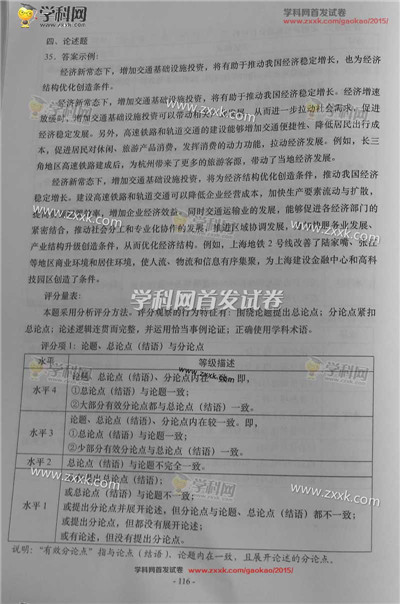 学科网
学科网首发试卷
www.zxxk.com/gaokao/2015/
四、论述题
35．答案示例：
经济新常态下，增加交通基础设施投资，将有助于推动我国经济稳定增长，也为经济
结构优化创造条件。
经济新常态下，增加交通基础设施投资，将有助于推动我国经济稳定增长。经济增速
放缓时，增加交通基础设施投资可以带动相关
从而进一步拉动社会需求，促进
经济稳定发展。另外，高速铁路和轨道交通的建设能够增加交通便捷性、降低居民出行成
本，促进居民对休闲、旅游产品消费，发挥消费的动力功能，拉动经济发展。例如，长三
角地区高速铁路建成后，为杭州带来了更多的旅游客源，带动了当地经济发展。
经济新常态下，增加交通基础设施投资，将为经济结构优化创造条件，推动我国经济
稳定增长。建设高速铁路和轨道交通可以降低企业经营成本，加快生产要素流动与扩散，
效率，增加企业经济效益。同时交通运输业的发展，能够促进各经济部门的
紧密结合，推动社会分工和专业化协作的发展，推进区域协调发展，
服务业发展、
产业结构升级创造条件，从而优化经济结构。例如，上海地铁 2 号线改善了陆家嘴、张江
等地区商业环境和居住环境，使人流、物流和信息有序集聚，为上海建设金融中心和高科
技园区创造了条件。
www.zxxk.com
学科网首发试卷
评分量表：
本题采用分析评分方法。评分观察的行为特征有：围绕论题提出总论点；分论点紧扣
总论点；论述逻辑连贯而完整，并运用恰当事例论证；正确使用学科术语。
评分项 1：论题、总论点（结语）与分论点
水平
等级描述
水平 4
论题、总论点（结语）、分论点内在一致。即，
①总论点（结语）与论题一致；
②大部分有效分论点都与总论点（结语）一致。
水平 3
论题、总论点（结语）、分论点内在较一致。即，
①总论点（结语）与论题一致；
②少部分有效分论点与总论点（结语）一致。
水平 2
总论点（结语）与论题不完全一致。
水平 1
提出总论点（结语）；
或总论点（结语）与论题不一致；
或提出分论点并展开论述，但分论点与论题、总论点（结语）都不一致；
或提出分论点，但都没有展开论述；
或有论述，但没有提出分论点。
说明：“有效分论点”指与论点（结语）、论题内在一致，且展开论述的分论点。
学科网首发试卷
www.zxxk.com/gaokao/2015/
- 116 -